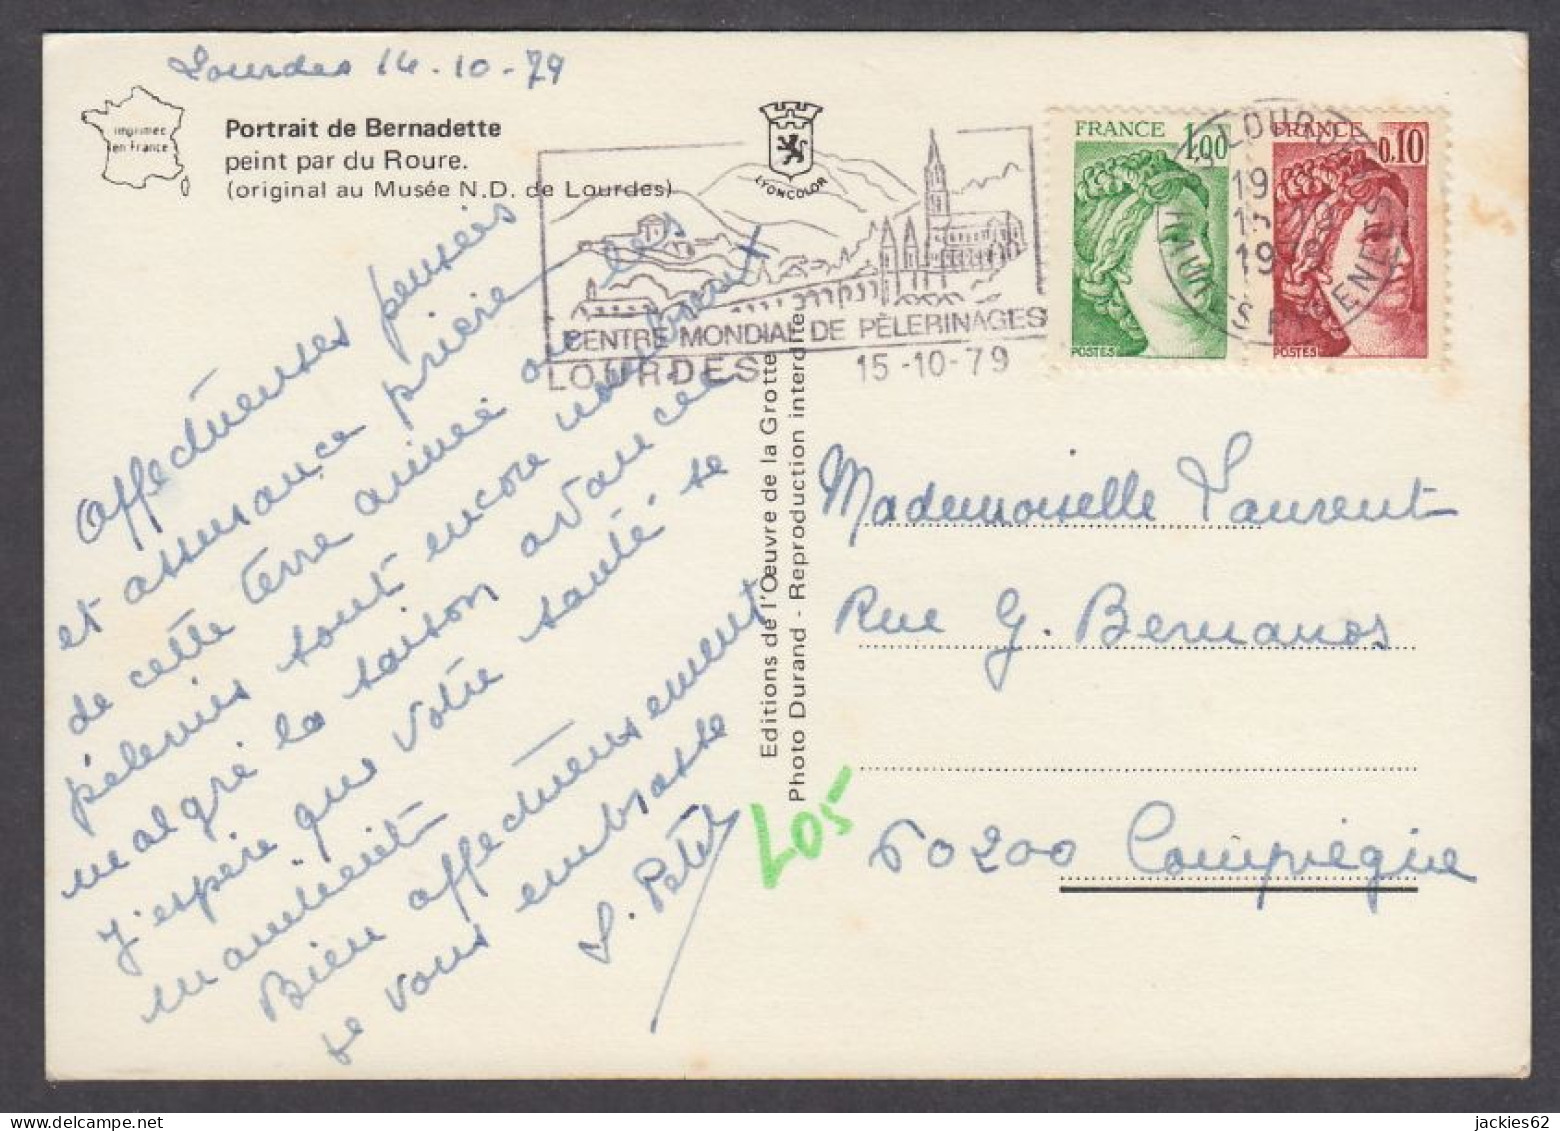 Lourdes 14-10-79
imprimée
en France
Portrait de Bernadette
peint par du Roure.
(original au Musée N.D. de Lourdes)
LYONCOLOR
Affectueuses pensées
et assurance prière
de cette terre aimée où les
pélerins sont encore nombreux
malgré la saison avancée
j'espère que votre santé se
maintient
Bien affectueusement
je vous embrasse
S. Petit
CENTRE MONDIAL DE PÈLERINAGES
LOURDES 15-10-79
Editions de l'Œuvre de la Grotte
Photo Durand - Reproduction interdite
FRANCE 1,00
POSTES
FRANCE 0,10
POSTES
LOURDES
19
15-10
1979
HAUTES PYRENEES
Mademoiselle Laurent
Rue G. Bernanos
60200 Compiègne
L05
jackies62